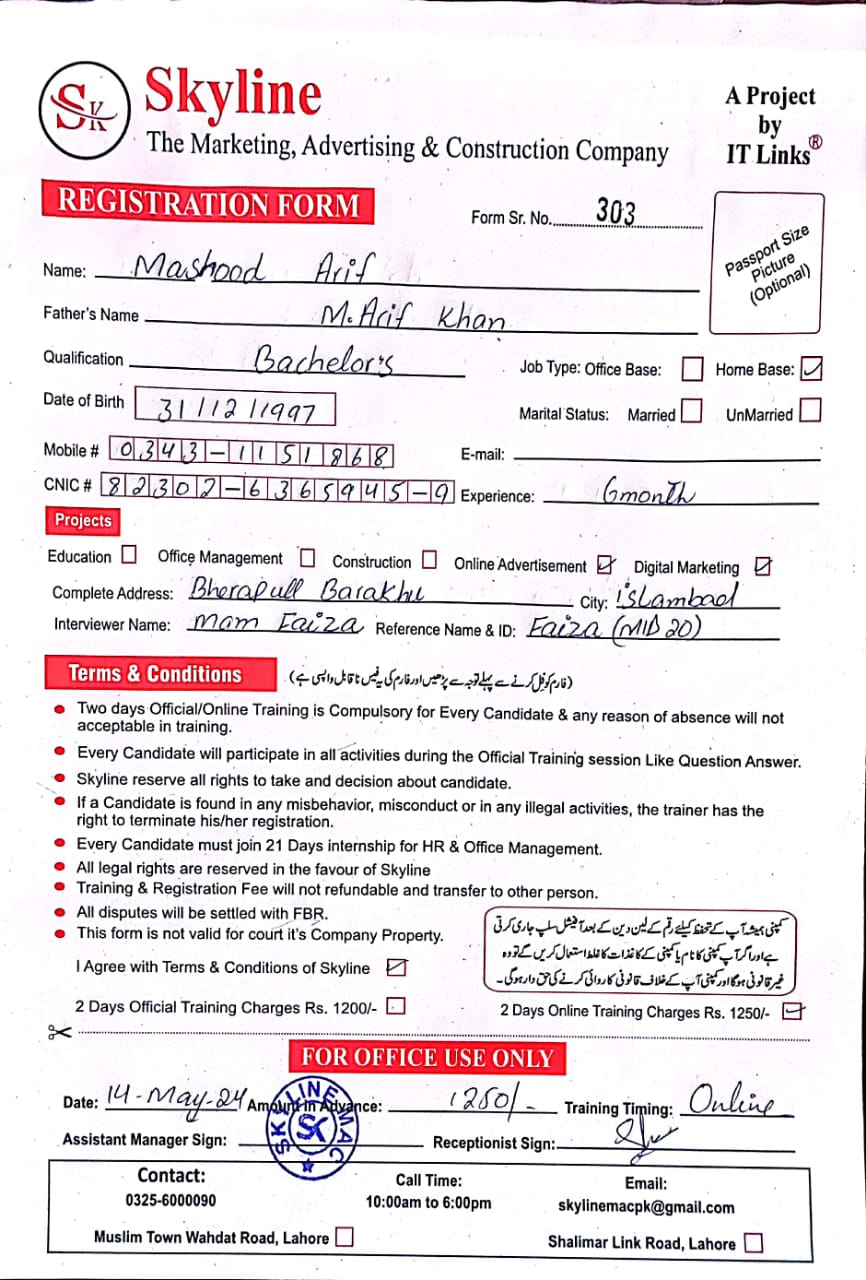 SK
Skyline
The Marketing, Advertising & Construction Company
A Project
by
IT Links®
REGISTRATION FORM
Form Sr. No. 303
Passport Size
Picture
(Optional)
Name: Mashood Arif
Father's Name M. Arif Khan
Qualification Bachelor's
Job Type: Office Base: Home Base:
Date of Birth 31/12/1997
Marital Status: Married UnMarried
Mobile # 0343-1151868
E-mail:
CNIC # 82302-6365945-9
Experience: 6month
Projects
Education Office Management Construction Online Advertisement Digital Marketing
Complete Address: Bherapull Barakhu City: islambad
Interviewer Name: Mam Faiza Reference Name & ID: Faiza (MID 20)
Terms & Conditions (فارم کو فِل کرنے سے پہلے توجہ سے پڑھیں اور فارم کی یہ فیس ناقابل واپسی ہے)
Two days Official/Online Training is Compulsory for Every Candidate & any reason of absence will not
acceptable in training.
Every Candidate will participate in all activities during the Official Training session Like Question Answer.
Skyline reserve all rights to take and decision about candidate.
If a Candidate is found in any misbehavior, misconduct or in any illegal activities, the trainer has the
right to terminate his/her registration.
Every Candidate must join 21 Days internship for HR & Office Management.
All legal rights are reserved in the favour of Skyline
Training & Registration Fee will not refundable and transfer to other person.
All disputes will be settled with FBR.
This form is not valid for court it's Company Property.
کمپنی ہمیشہ آپ کے تحفظ کیلئے رقم کے لین دین کے بعد آفیشل سلپ جاری کرتی
ہے اور اگر آپ کمپنی کا نام یا کمپنی کے کاغذات کا غلط استعمال کریں گے تو وہ
غیر قانونی ہوگا اور کمپنی آپ کے خلاف قانونی کاروائی کرنے کی حق دار ہوگی۔
I Agree with Terms & Conditions of Skyline
2 Days Official Training Charges Rs. 1200/-
2 Days Online Training Charges Rs. 1250/-
FOR OFFICE USE ONLY
Date: 14-May-24 Amount in Advance: 1250/- Training Timing: Online
Assistant Manager Sign: Receptionist Sign:
SKYLINE MAC
SK
Contact:
0325-6000090
Call Time:
10:00am to 6:00pm
Email:
skylinemacpk@gmail.com
Muslim Town Wahdat Road, Lahore
Shalimar Link Road, Lahore